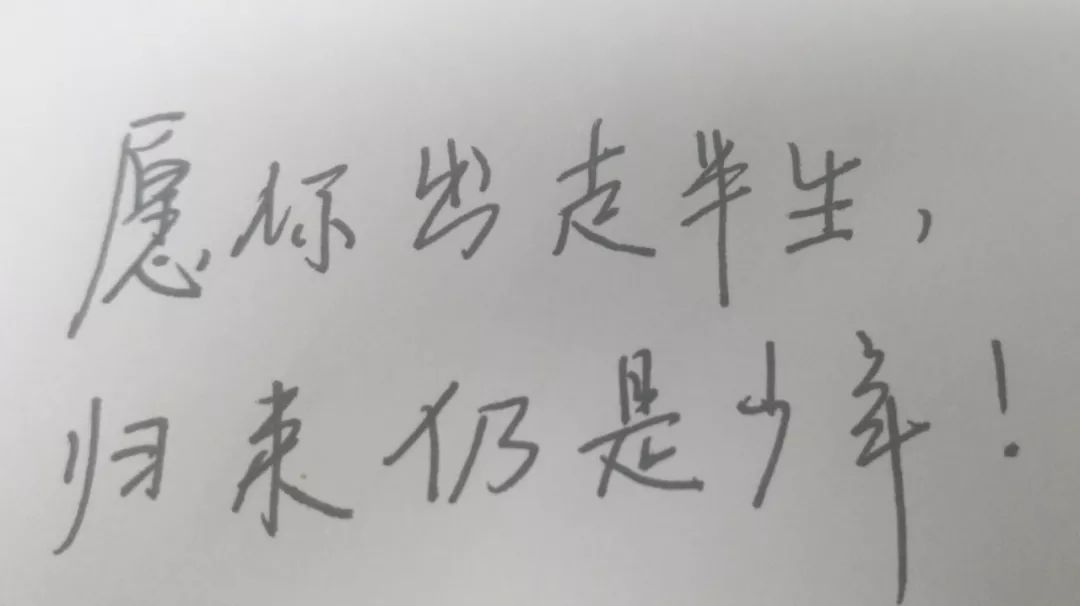 愿你出走半生，
归来仍是少年！